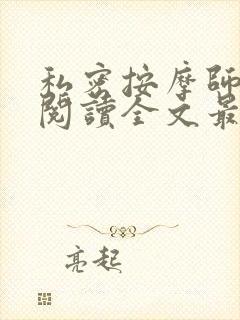 私密按摩師
閱讀全文最
亮起